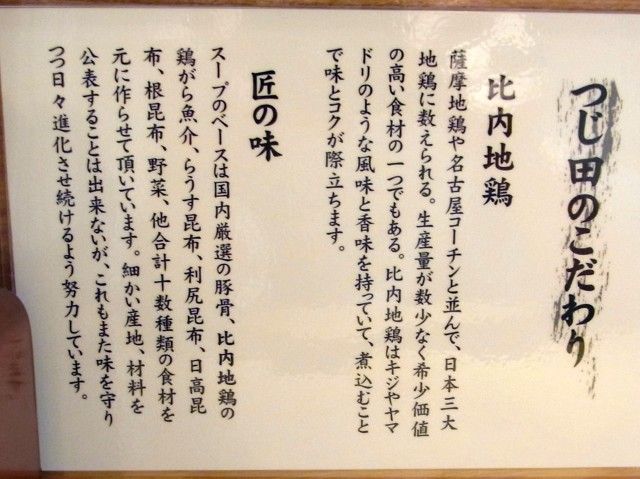 つじ田のこだわり
比内地鶏
薩摩地鶏や名古屋コーチンと並んで、日本三大
地鶏に数えられる。生産量が数少なく希少価値
の高い食材の一つでもある。比内地鶏はキジやヤマ
ドリのような風味と香味を持っていて、煮込むこと
で味とコクが際立ちます。
匠の味
スープのベースは国内厳選の豚骨、比内地鶏の
鶏がら魚介、らうす昆布、利尻昆布、日高昆
布、根昆布、野菜、他合計十数種類の食材を
元に作らせて頂いています。細かい産地、材料を
公表することは出来ないが、これもまた味を守り
つつ日々進化させ続けるよう努力しています。